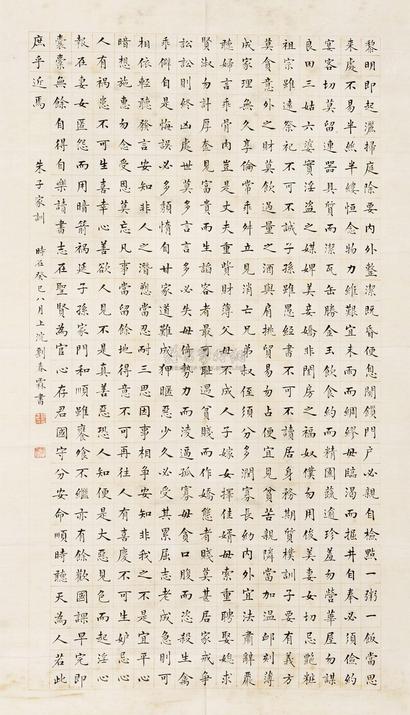 黎明即起灑掃庭除要內外整潔既昏便息關鎖門戶必親自檢點一粥一飯當思
來處不易半絲半縷恒念物力維艱宜未雨而綢繆毋臨渴而掘井自奉必須儉約
宴客切莫留連器具質而潔瓦缶勝金玉飲食約而精園蔬逾珍羞勿營華屋勿謀
良田三姑六婆實淫盜之媒婢美妾嬌非閨房之福奴僕勿用俊美妻女切忌艷粧
祖宗雖遠祭祀不可不誠子孫雖愚經書不可不讀居身務期質樸訓子要有義方
莫貪意外之財莫飲過量之酒與肩挑貿易勿占便宜見貧苦親鄰當加溫卹刻薄
成家理無久享倫常乖舛立見消亡兄弟叔侄須分多潤寡長幼內外宜法肅辭嚴
聽婦言乖骨肉豈是丈夫重貲財薄父母不成人子嫁女擇佳婿毋索重聘娶媳求
賢淑勿計厚奩見富貴而生諂容者最可恥遇貧賤而作驕態者賤莫甚居家戒爭
訟訟則終凶處世莫多言言多必失毋恃勢力而凌逼孤寡毋貪口腹而恣殺生禽
乖僻自是悔誤必多頹惰自甘家道難成狎暱惡少久必受其累屈志老成急則可
相依輕聽發言安知非人之譖愬當忍耐三思因事相爭安知非我之不是宜平心
暗想施惠勿念受恩莫忘凡事當留餘地得意不可再往人有喜慶不可生妒忌心
人有禍患不可生喜幸心善欲人見不是真善惡恐人知便是大惡見色而起淫心
報在妻女匿怨而用暗箭禍延子孫家門和順雖饔飧不繼亦有餘歡國課早完即
囊橐無餘自得自樂讀書志在聖賢為官心存君國守分安命順時聽天為人若此
庶乎近焉 朱子家訓 時在癸巳八月上浣劉春霖書